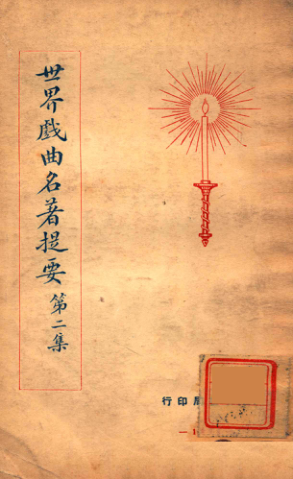 世界戲曲名著提要 第二集
行印局